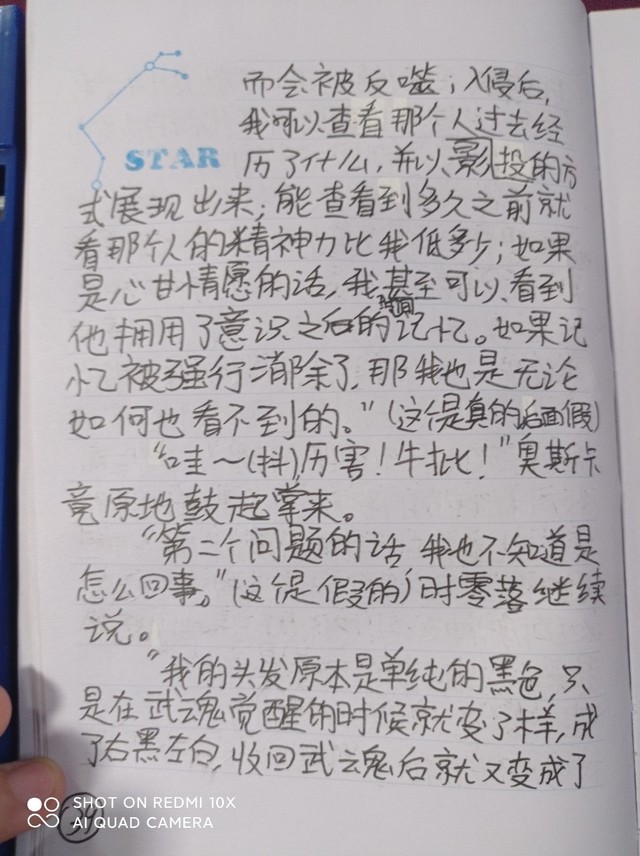 而会被反噬；入侵后，
我可以查看那个人过去经
STAR
历了什么，并以影投的方
式展现出来；能查看到多久之前就
看那个人的精神力比我低多少；如果
是心甘情愿的话，我甚至可以看到
他拥用了意识之后的所有记忆。如果记
忆被强行消除了，那我也是无论
如何也看不到的。”（这个是真的后面假）
“哇～（抖）厉害！牛批！”奥斯卡
竟原地鼓起掌来。
“第二个问题的话 我也不知道是
怎么回事。”（这个是假的）时零落继续
说。
“我的头发原本是单纯的黑色，只
是在武魂觉醒的时候就变了样，成
了右黑左白，收回武魂后就又变成了
SHOT ON REDMI 10X
AI QUAD CAMERA